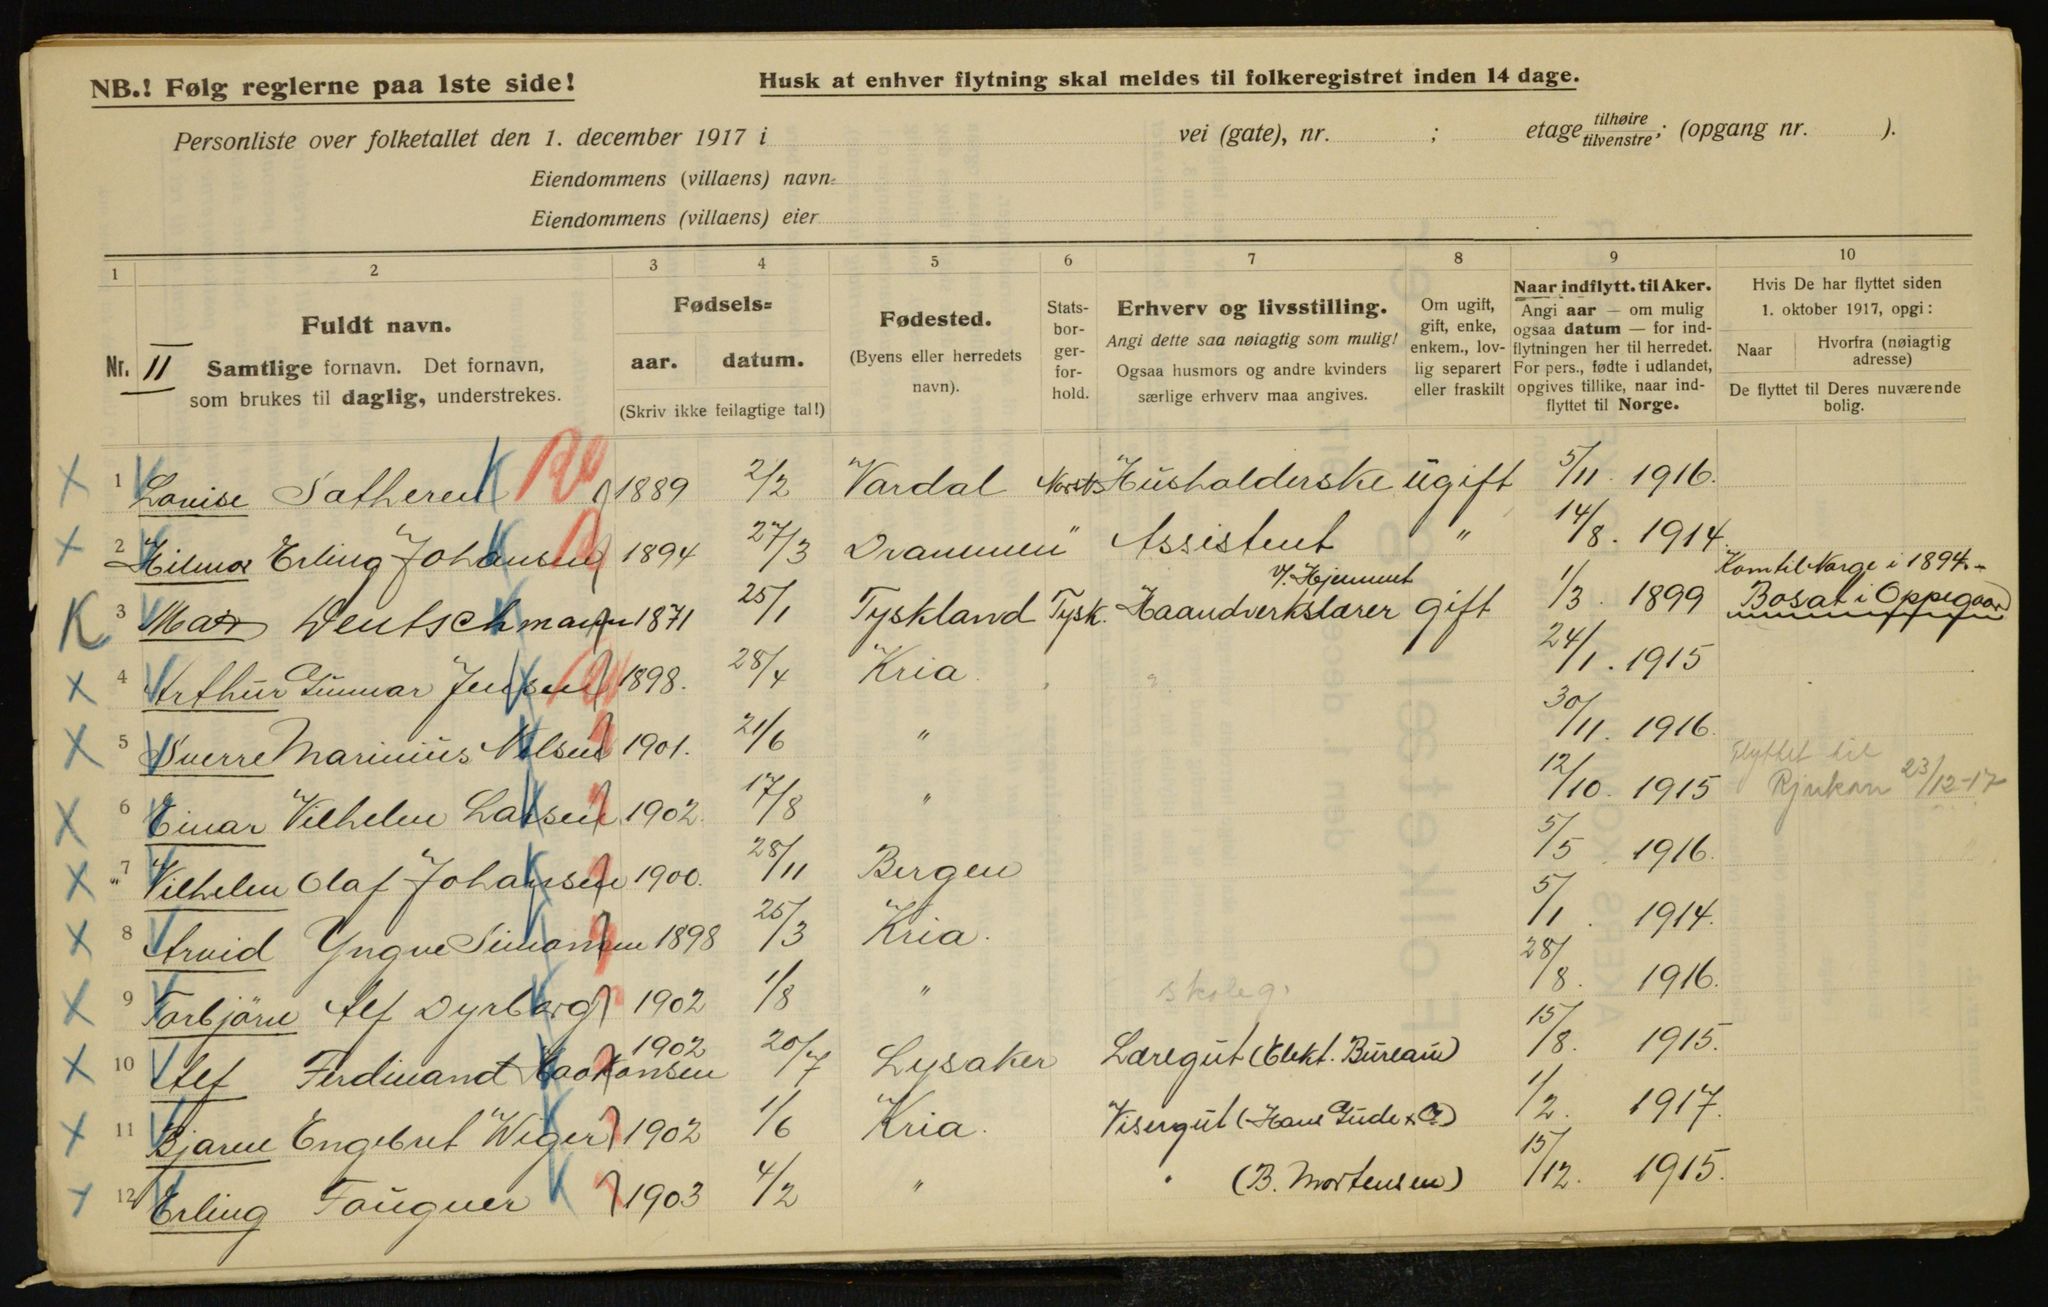 NB.! Følg reglerne paa 1ste side! Husk at enhver flytning skal meldes til folkeregistret inden 14 dage.
Personliste over folketallet den 1. december 1917 i vei (gate), nr. ; etage tilhøire tilvenstre; (opgang nr. ).
Eiendommens (villaens) navn:
Eiendommens (villaens) eier
1 2 3 4 5 6 7 8 9 10
Nr. II
Fuldt navn.
Samtlige fornavn. Det fornavn,
som brukes til daglig, understrekes.
Fødsels=
aar. datum.
(Skriv ikke feilagtige tal!)
Fødested.
(Byens eller herredets
navn).
Stats-
bor-
ger-
for-
hold.
Erhverv og livsstilling.
Angi dette saa nøiagtig som mulig!
Ogsaa husmors og andre kvinders
særlige erhverv maa angives.
Om ugift,
gift, enke,
enkem., lov-
lig separert
eller fraskilt
Naar indflytt. til Aker.
Angi aar — om mulig
ogsaa datum — for ind-
flytningen her til herredet.
For pers., fødte i udlandet,
opgives tillike, naar ind-
flyttet til Norge.
Hvis De har flyttet siden
1. oktober 1917, opgi:
Naar Hvorfra (nøiagtig
adresse)
De flyttet til Deres nuværende
bolig.
X 1 Louise Satheren K 1889 2/2 Vardal Norsk Husholderske ugift 5/11. 1916.
X 2 Hilmar Erling Johansen 1894 27/3 Drammen " Assistent " 14/8. 1914.
Kom til Norge i 1894.-
v/. Hjemmet
K 3 Max Deutschmann 1871 25/1 Tyskland Tysk. Haandverkslærer gift 1/3. 1899 Bosat i Oppegaard
X 4 Arthur Gunnar Jensen 1898. 28/4 Kria. 24/1. 1915
X 5 Sverre Marinius Nilsen 1901. 21/6 " 30/11. 1916.
Flyttet til
X 6 Einar Vilhelm Larsen 1902. 17/8 " 12/10. 1915 Rjukan 23/12-17
X 7 Vilhelm Olaf Johansen 1900. 28/11 Bergen 5/5 1916.
X 8 Arvid Yngve Simonsen 1898 25/3 Kria. 5/1. 1914.
X 9 Torbjörn Alf Dyrberg 1902 1/8 " skoleg. 28/8. 1916.
X 10 Alf Ferdinand Haakonsen 1902 20/7 Lysaker Læregut (Elekt. Bureau) 15/8. 1915.
X 11 Bjarne Engebret Wiger 1902 1/6 Kria. Visergut (Hans Gude & Co) 1/2. 1917.
X 12 Erling Fougner K 1903 4/2 " " (B. Mortensen) 15/12. 1915.